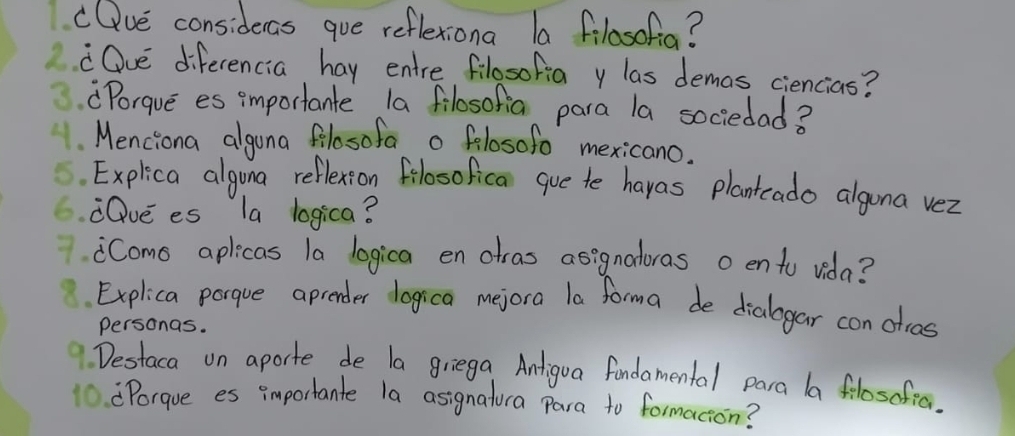 1. ¿Qué consideras que reflexiona la filosofia?
2. ¿Qué diferencia hay entre filosofia y las demas ciencias?
3. ¿Porqué es importante la filosofia para la sociedad?
4. Menciona alguna filosofa o filosofo mexicano.
5. Explica alguna reflexion filosofica que te hayas planteado alguna vez
6. ¿Qué es la logica?
7. ¿Como aplicas la logica en otras asignaturas o en tu vida?
8. Explica porque aprender logica mejora la forma de dialogar con otras
personas.
9. Destaca un aporte de la griega Antigua fundamental para la filosofia.
10. ¿Porque es importante la asignatura para tu formación?